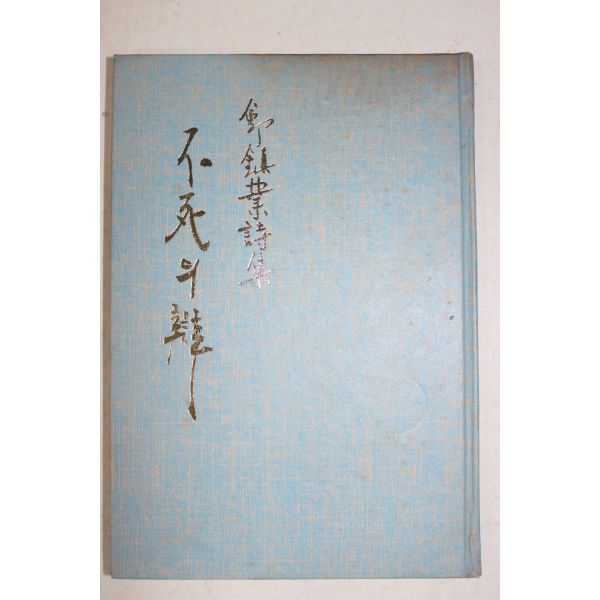 鄭鎭業詩集
不死의 辯